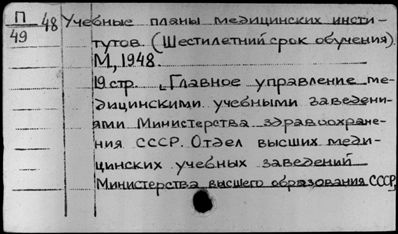 П/49 48 Учебные планы медицинских инсти-
тутов. (Шестилетний срок обучения).
М., 1948.
19 стр. „Главное управление ме-
дицинскими учебными заведени-
ями Министерства здравоохране-
ния СССР. Отдел высших меди-
цинских учебных заведений
Министерства высшего образования СССР,